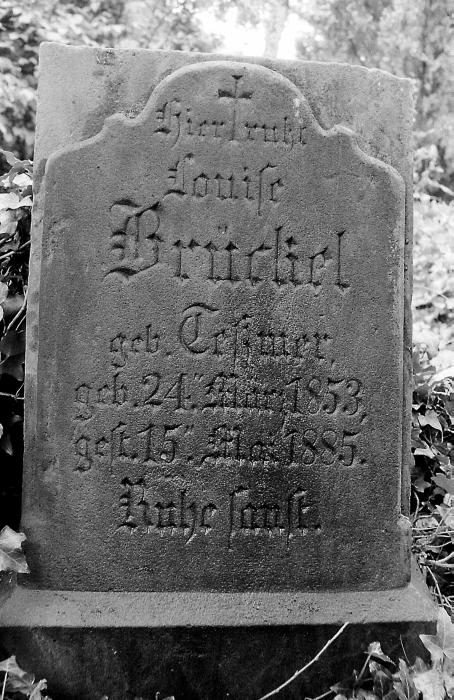 Hier ruht
Louise
Brückel
geb. Teßmer,
geb. 24. Mai 1853,
gest. 15. Mai 1885.
Ruhe sanft.